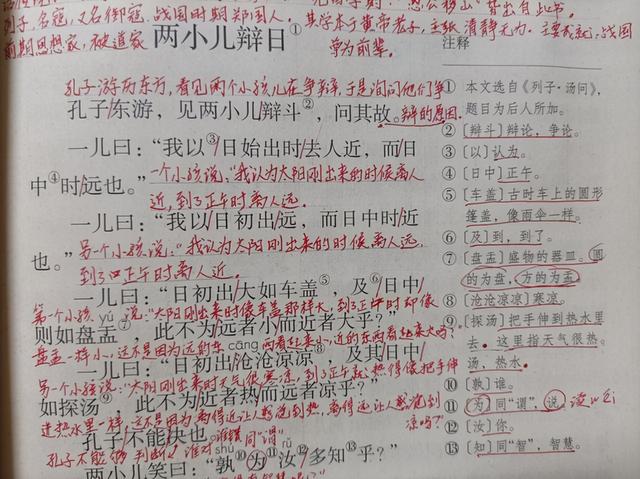 列子,名寇,又名御寇,战国时期郑国人。其学本于黄帝老子,主张清静无为。
前期思想家,被道家尊为前辈。
两小儿辩日①
注释
孔子游历东方,看见两个小孩儿在争辩,于是询问他们争
孔子/东游,见两小儿/辩斗②,问其故。辩的原因.
一儿曰:“我以③/日始出时/去人近,而/日
中④时/远也。”一个小孩说:“我认为太阳刚出来的时候离人
近,到了正午时离人远.
一儿曰:“我以/日初出/远,而日中时/近
也。”另一个小孩说:“我认为太阳刚出来的时候离人远,
到了正午时离人近.
一儿曰:“日初出/大如车盖⑤,及⑥/日中
第一个小孩说:“太阳刚出来时像车盖那样大,到了正中时却像
yú
则如盘盂⑦,此不为/远者小/而近者大乎?”
盘盂一样小,这不是因为远的
cāng
一儿曰:“日初出/沧沧凉凉⑧,及其/日中
另一个小孩说:“太阳刚出来时天气很寒凉,到了正午就热得像把手伸
如探汤⑨,此不为/近者热/而远者凉乎?”
进热水里一样,这不是因为离得近让人感觉到热,离得远让人感觉到
凉吗?
孔子/不能决也。
孔子不能够判断谁对
shú
同“谓”
rǔ
两小儿笑曰:“孰⑩/为⑪汝⑫/多知⑬乎?”
① 本文选自《列子·汤问》,
题目为后人所加。
② [辩斗]辩论,争论。
③ [以]认为。
④ [日中]正午。
⑤ [车盖]古时车上的圆形
篷盖,像雨伞一样。
⑥ [及]到,到了。
⑦ [盘盂]盛物的器皿。圆
的为盘,方的为盂。
⑧ [沧沧凉凉]寒凉。
⑨ [探汤]把手伸到热水里
去。这里指天气很热。
汤,热水。
⑩ [孰]谁。
⑪ [为]同“谓”,说。
⑫ [汝]你。
⑬ [知]同“智”,智慧。